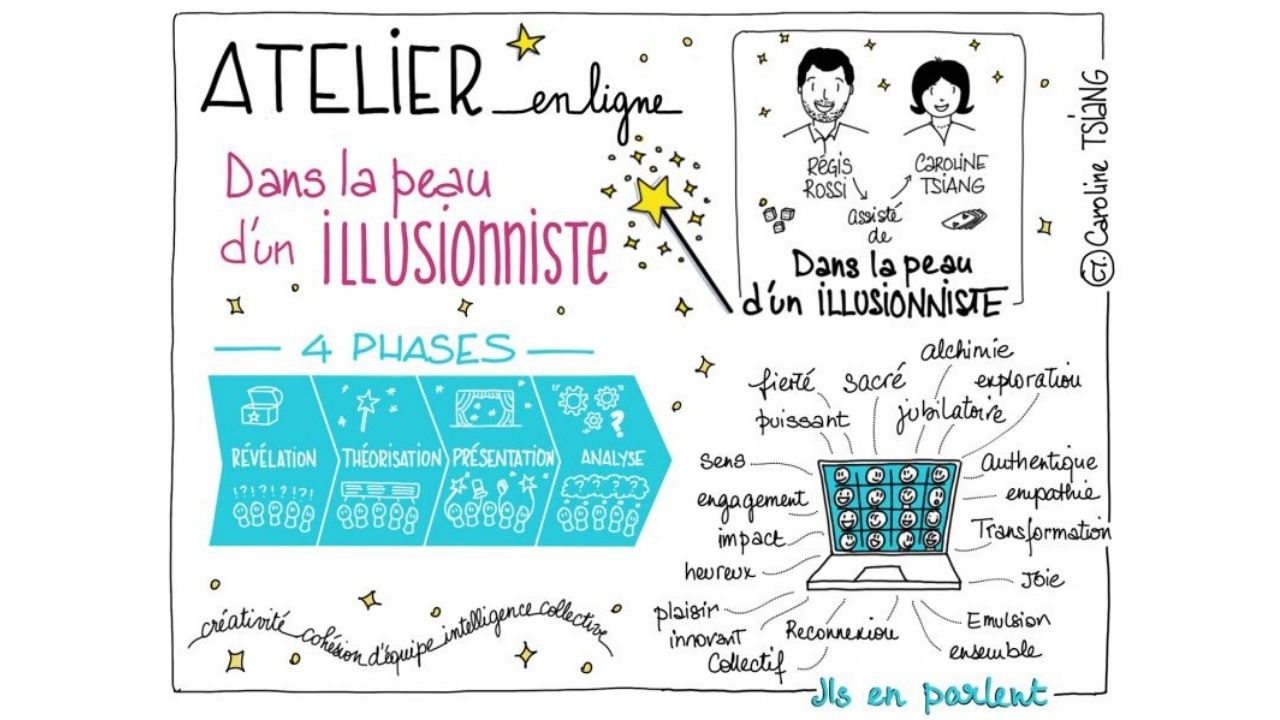 ATELIER en ligne
Dans la peau
d'un ILLUSIONNISTE
4 PHASES
RÉVÉLATION
THÉORISATION
PRÉSENTATION
ANALYSE
!?!?!?!
?
créativité cohésion d'équipe intelligence collective
RÉGIS
ROSSI
CAROLINE
TSIANG
assisté
de
Dans la peau
d'un ILLUSIONNISTE
CT. Caroline TSIANG
alchimie
fierté
sacré
exploration
puissant
jubilatoire
sens
authentique
engagement
empathie
impact
Transformation
heureux
Joie
plaisir
innovant
Reconnexion
Emulsion
Collectif
ensemble
Ils en parlent